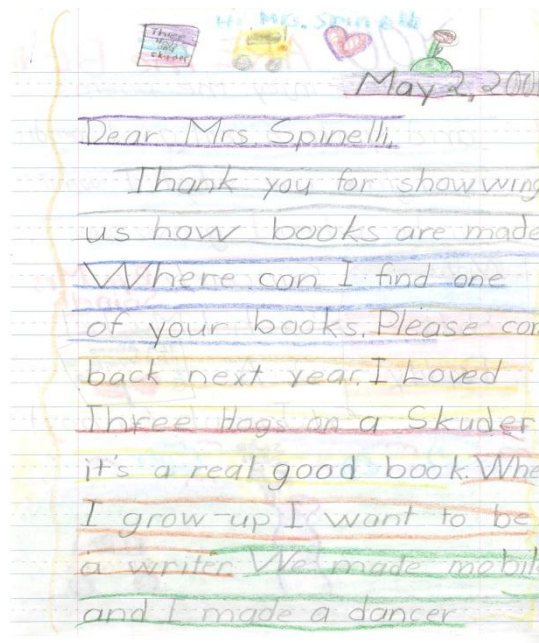 Hi Mrs. Spinelli
Three
Hogs
Skuder
May 2, 200
Dear Mrs. Spinelli,
Thank you for showwing
us how books are made
Where can I find one
of your books. Please com
back next year. I Loved
Three Hogs on a Skuder
it's a real good book. Whe
I grow-up I want to be
a writer We made mobil
and I made a dancer